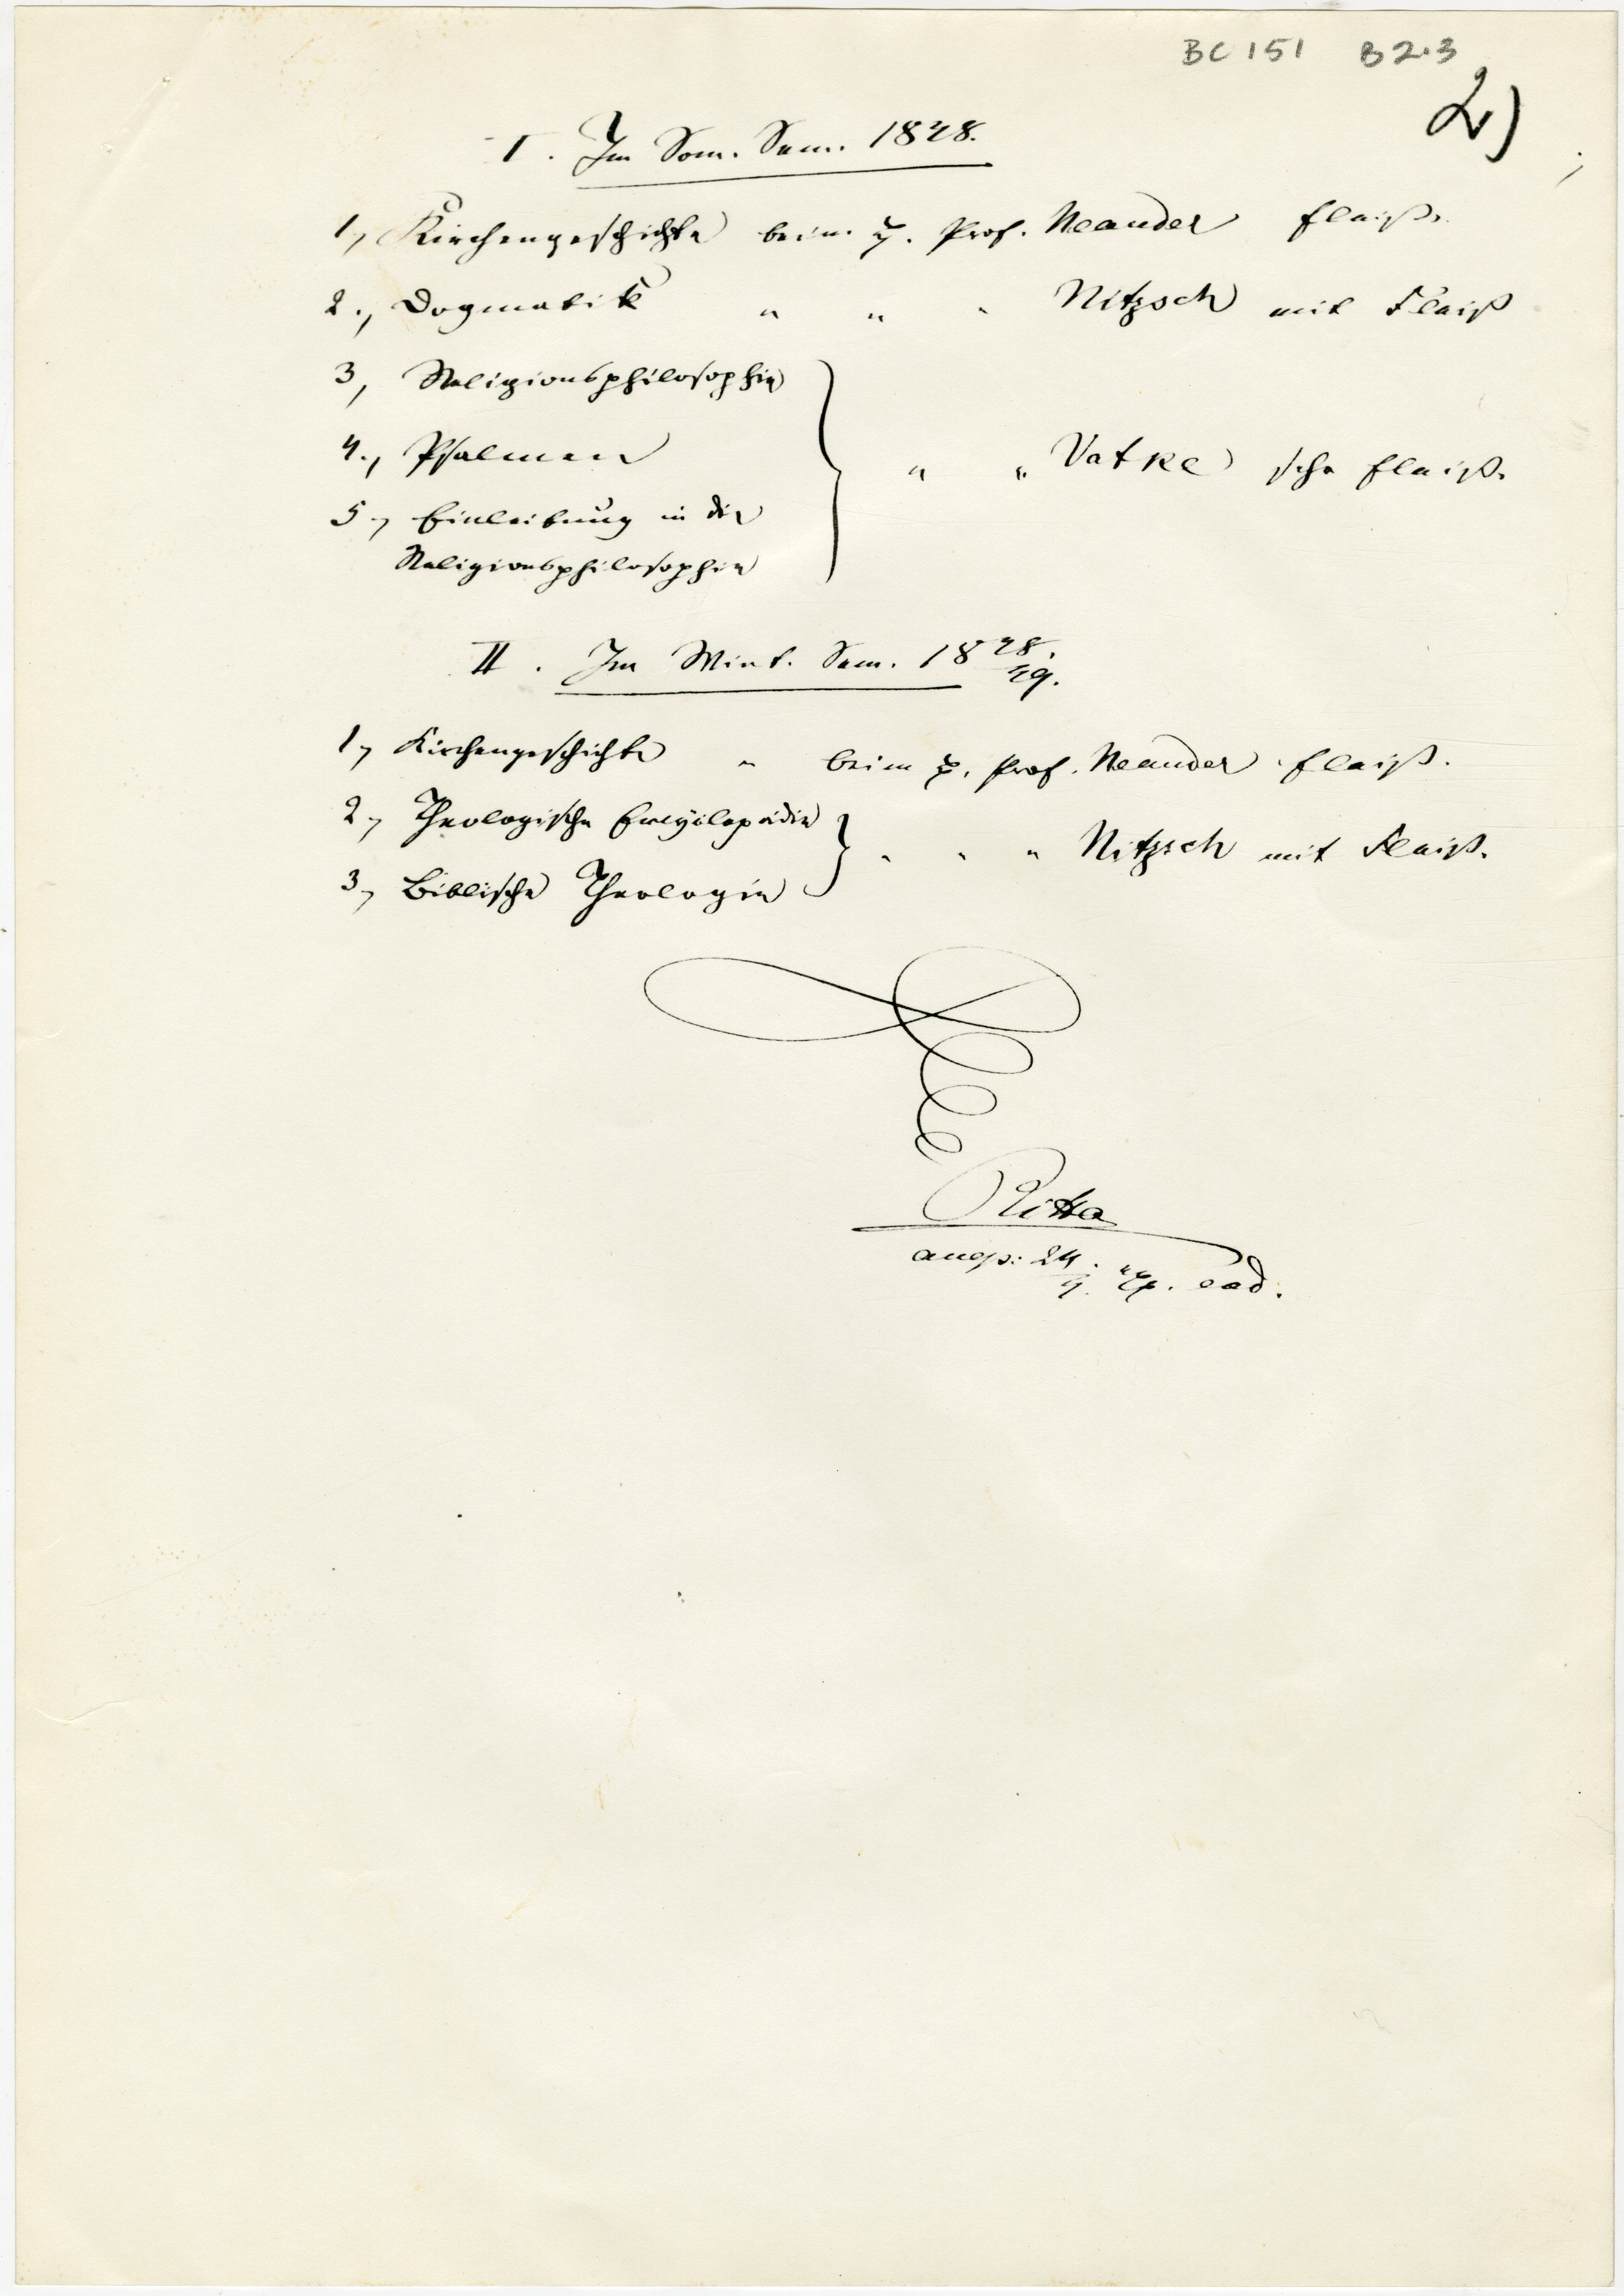 BC 151 B2.3
2)
I. Im Som. Sem. 1848.
1, Kirchengeschichte beim H. Prof. Neander fleiß.
2., Dogmatik " " " Nitzsch mit Fleiß
3, Religionsphilosophie
4., Psalmen " " Vatke sehr fleiß.
5, Einleitung in die
Religionsphilosophie
II. Im Wint. Sem. 18 48./49.
1, Kirchengeschichte " beim H. Prof. Neander fleiß.
2, Theologische Encyclopädie
" " " Nitzsch mit Fleiß.
3, Biblische Theologie